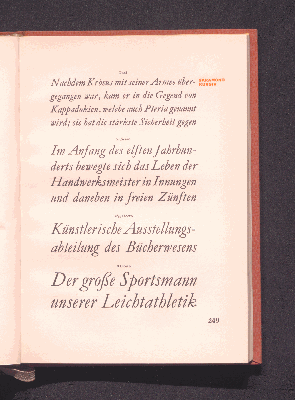 Nachdem Krösus mit seiner Armee über-
gegangen war, kam er in die Gegend von
Kappadokien, welche auch Pteria genannt
wird; sie hat die stärkste Sicherheit gegen
GARAMOND
KURSIV
Im Anfang des elften Jahrhun-
derts bewegte sich das Leben der
Handwerksmeister in Innungen
und daneben in freien Zünften
Künstlerische Ausstellungs-
abteilung des Bücherwesens
Der große Sportsmann
unserer Leichtathletik
249